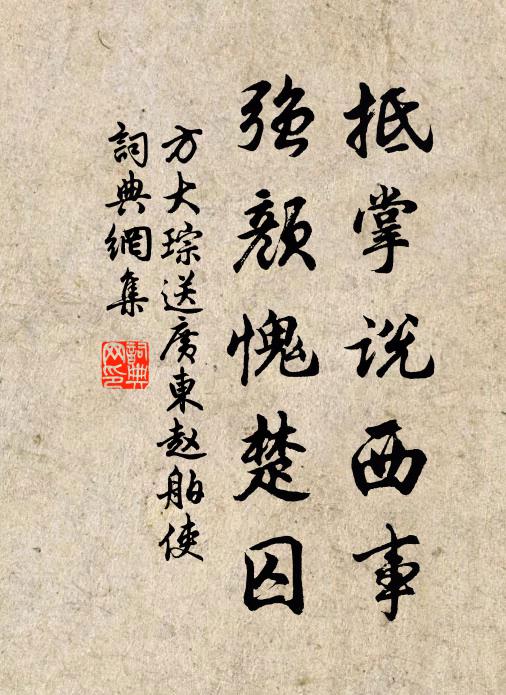 抵掌説西事
强颜愧楚囚
方大琮送廣東赵舶使
詞典網集
詞典
网印